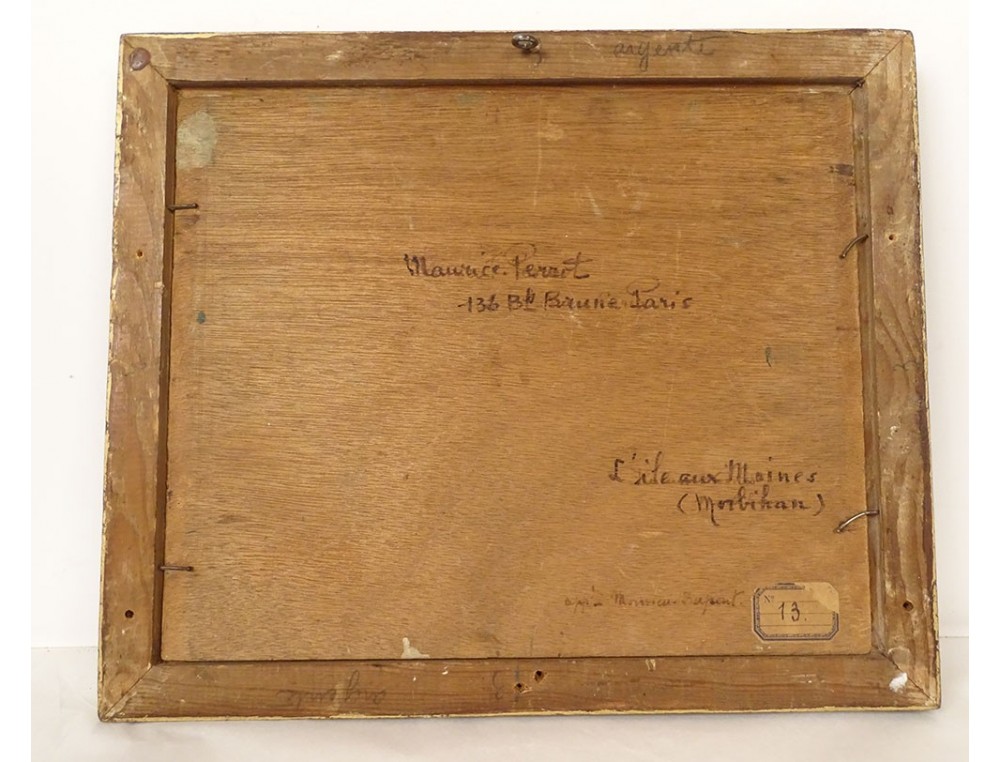 argenté
Maurice Perrot
136 Bd Brune Paris
L'île aux Moines
(Morbihan)
Monsieur
N° 13.